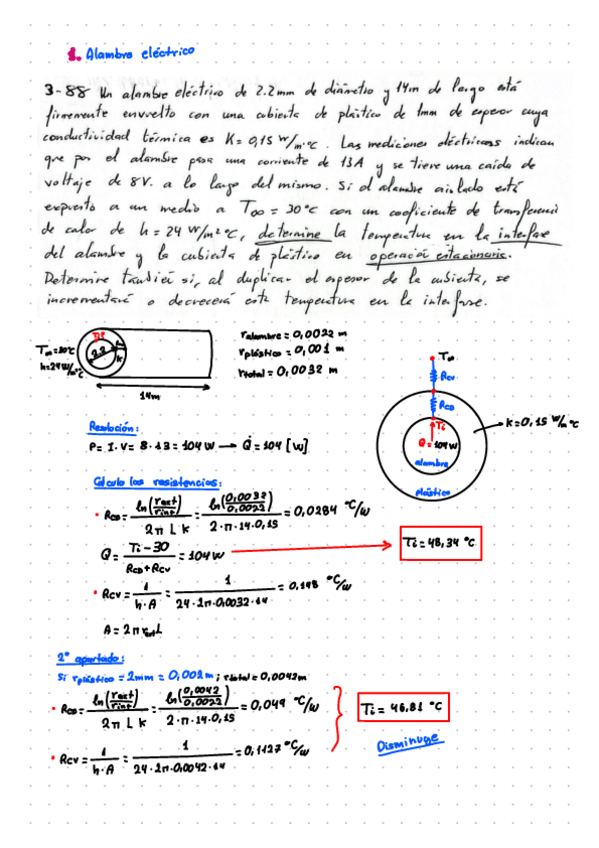 1. Alambre eléctrico
3-88 Un alambre eléctrico de 2.2mm de diámetro y 14m de largo está
firmemente envuelto con una cubierta de plástico de 1mm de espesor cuya
conductividad térmica es K= 0,15 W/m·°C. Las mediciones eléctricas indican
que por el alambre pasa una corriente de 13A y se tiene una caída de
voltaje de 8V. a lo largo del mismo. Si el alambre aislado está
expuesto a un medio a T∞ = 30°C con un coeficiente de transferencia
de calor de h = 24 W/m²°C, determine la temperatura en la interfase
del alambre y la cubierta de plástico en operación estacionaria.
Determine también si, al duplicar el espesor de la cubierta, se
incrementará o decrecerá esta temperatura en la interfase.
T∞=30°C
h=24 W/m²°C
Ti
2.2
K
14m
ralambre = 0,0022 m
rplástico = 0,001 m
rtotal = 0,0032 m
T∞
Rcv
RCD
Ti
Q = 104W
alambre
plástico
K=0,15 W/m°C
Resolución:
P= I·V= 8·13= 104W → Q̇ = 104 [W]
Cálculo las resistencias:
• RCD = ln(rext/rint) / 2π L k = ln(0,0032/0,0022) / 2·π·14·0,15 = 0,0284 °C/W
Q = Ti-30 / RCD+RCV = 104W → Ti = 48,34 °C
• RCV = 1 / h·A = 1 / 24·2π·0,0032·14 = 0,148 °C/W
A = 2π rext L
2º apartado:
Si rplástico = 2mm = 0,002m ; rtotal = 0,0042m
• RCD = ln(rext/rint) / 2π L k = ln(0,0042/0,0022) / 2·π·14·0,15 = 0,049 °C/W
Ti = 46,81 °C
• RCV = 1 / h·A = 1 / 24·2π·0,0042·14 = 0,1127 °C/W
Disminuye